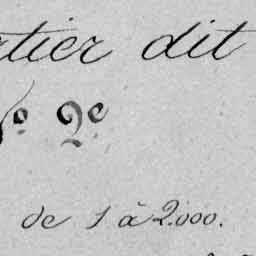 rtier dit
No 2e
de 1 à 2.000.